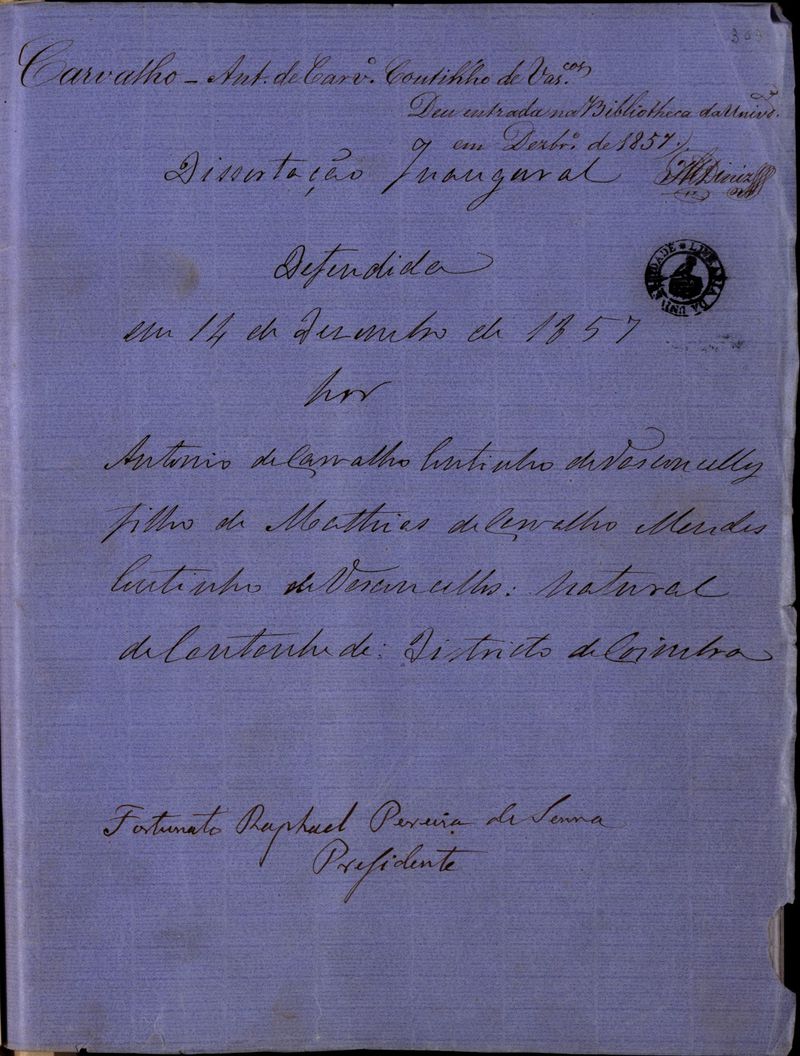 309
Carvalho – Ant. de Carvº. Coutinho de Vas.cos
Deu entrada na Bibliotheca da Univde.
em Dezbrº. de 1857
Dissertação Inaugural
Diniz
LIVRARIA DA UNIVERSIDADE
Defendida
em 14 de Dezembro de 1857
por
Antonio de Carvalho Coutinho de Vasconcellos
filho de Mathias de Carvalho Mendes
Coutinho de Vasconcellos: natural
de Cantanhede: Districto de Coimbra
Fortunato Raphael Pereira de Senna
Presidente